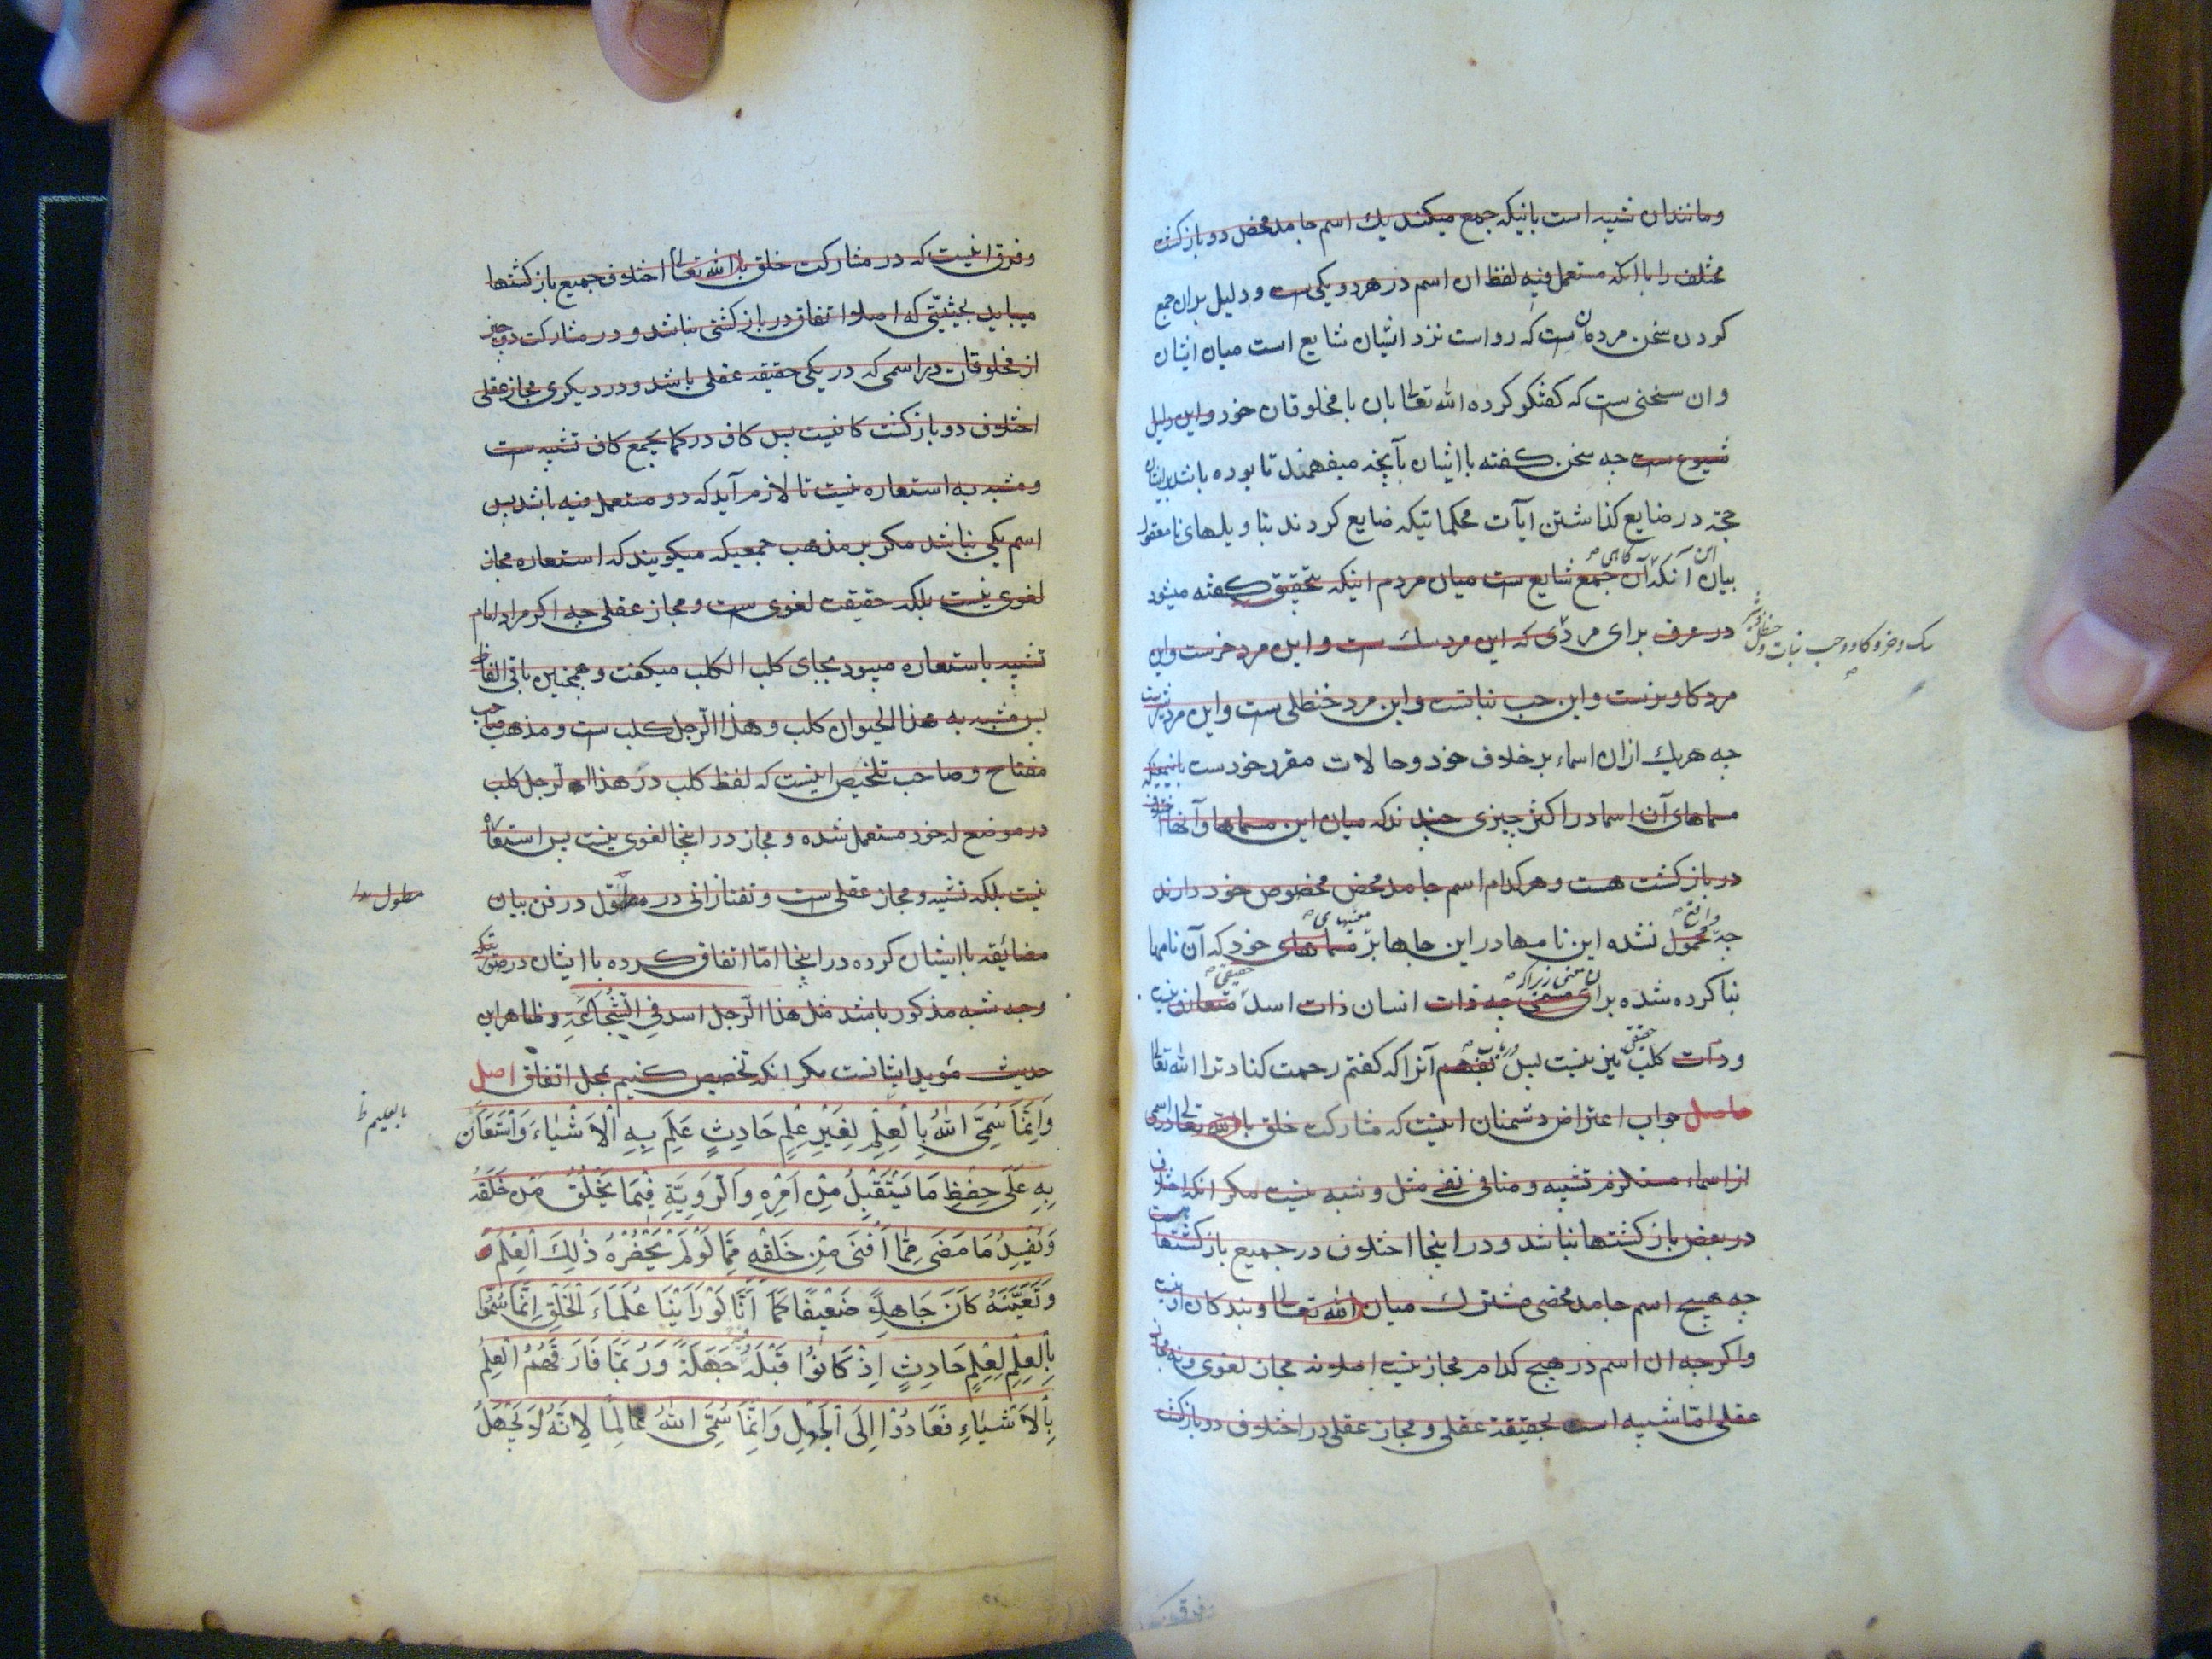 ومانندان شبیه است بانیکه جمع میکند یك اسم جامد محض دو بازکشت
مختلف را باانکه مستعمل فیه لفظ ان اسم در هر دو یکی ست و دلیل بران جمع
کردن سخن مردمان ست که رواست نزد ایشان شایع است میان ایشان
وان سخنی ست که کفتکو کرده الله تعالی بان با مخلوقان خود واین دلیل
شیوع ست چه سخن کفته با ایشان بآنچه میفهمند تا بوده باشد برایشان
حجة در ضایع کذاشتن ایآت محکماتیکه ضایع کردند بتاویلهای نامعقول
بیان این آنکه آن جمع کاهی شایع ست میان مردم اینکه بتحقیق کفته میشود
در عرف برای مردی که این مرد سك ست و این مرد خرست واین
سک و خر و کاو و حب نبات و حنظل و شیر
مرد کاو نرست واین حب نباتست واین مرد حنظلی ست واین مرد شیریست
چه هریك ازان اسماء بر خلاف خود وحالات مقرر خودست بانیمعنیکه
مسماهای آن اسما در اکثر چیزی چندند که میان این مسماها وآنها اختلاف
در بازکشت هست وهر کدام اسم جامد محض مخصوص خود دارند
چه محمول واقع نشده این نامها در این جاها بر مسماهای معنیهای خود که آن نامها
بنا کرده شده برای مسمی چه ذات انسان ذات اسد حقیقی متعارف نیست
وذات کلب حقیقی نیز نیست پس بفهم دریاب آنرا که کفتم رحمت کناد ترا الله تعالی
حاصل جواب اعتراض دشمنان اینست که مشارکت خلق با الله تعالی در اسمی
از اسماء مستلزم تشبیه و منافی نفی مثل و شبه نیست مکر انکه اختلاف
در بعض بازکشتها نباشد و در اینجا اختلاف در جمیع بازکشتها هست
چه هیچ اسم جامد محضی مشترك میان الله تعالی و بندکان او نیست
واکرچه ان اسم در هیچ کدام مجاز نیست اصلا نه مجاز لغوی ونه مجاز
عقلی اما شبیه است بحقیقة عقلی و مجاز عقلی در اختلاف دو بازکشت
وفرق اینست که در مشارکت خلق با الله تعالی اختلاف جمیع بازکشتها
میباید بحیثیتی که اصلا اتفاق در بازکشتی نباشد و در مشارکت دو چیز
از مخلوقان در اسمی که در یکی حقیقه عقلی باشد و در دیکری مجاز عقلی
اختلاف دو بازکشت کافیست پس کاف در کما یجمع کاف تشبیه ست
ومشبه به استعاره نیست تا لازم آید که دو مستعمل فیه باشد پس
اسم یکی نباشد مکر بر مذهب جمعیکه میکویند که استعاره مجاز
لغوی نیست بلکه حقیقت لغوی ست و مجاز عقلی چه اکر مراد امام
تشبیه باستعاره میبود بجای کلب الکلب میکفت و همچنین باقی الفاظ
پس مشبه به هذا الحیوان کلب و هذا الرجل کلب ست و مذهب صاحب
مفتاح و صاحب تلخیص اینست که لفظ کلب در هذا الرجل کلب
در موضع له خود مستعمل شده و مجاز در اینجا لغوی نیست پس استعاره
نیست بلکه تشبیه و مجاز عقلی ست و تفتازانی در مطول در فن بیان
مطول
مضائقه با ایشان کرده در اینجا اما اتفاق کرده با ایشان در صورتیکه
وجه شبه مذکور باشد مثل هذا الرجل اسد فی الشُّجَاعَةِ وظاهر این
حدیث مؤید ایشانست مکر انکه تخصیص کنیم بمحل اتفاق اصل
وَاِنَّمَا سُمِّیَ اللّٰهُ بِالْعِلْمِ لِغَیْرِ عِلْمٍ حَادِثٍ عَلِمَ بِهِ الْاَشْیَاءَ وَاسْتَعَانَ
بالعلیم ظ
بِهِ عَلَی حِفْظِ مَا یَسْتَقْبِلُ مِنْ اَمْرِهِ وَالرَّوِیَّةِ فِیْمَا یَخْلُقُ مَن خَلَقَهُ
وَیُفْسِدُ مَا مَضَی مِمَّا اَفْنَی مِنْ خَلْقِهِ مِمَّا لَوْ لَمْ یَحْضُرْهُ ذٰلِكَ الْعِلْمُ
وَتَغَیَّبَهُ کَانَ جَاهِلًا ضَعِیْفًا کَمَا اَنَّا لَوْ رَاَیْنَا عُلَمَاءَ الْخَلْقِ اِنَّمَا سُمُّوْا
بِالْعِلْمِ لِعِلْمٍ حَادِثٍ اِذْ کَانُوْا قَبْلَهُ جَهَلَةً وَرُبَمَا فَارَقَهُمُ الْعِلْمُ
بِالْاَشْیَاءِ فَعَادُوْا اِلَی الْجَهْلِ وَاِنَّمَا سُمِّیَ اللّٰهُ عَالِمًا لِاَنَّهُ لَا یَجْهَلُ